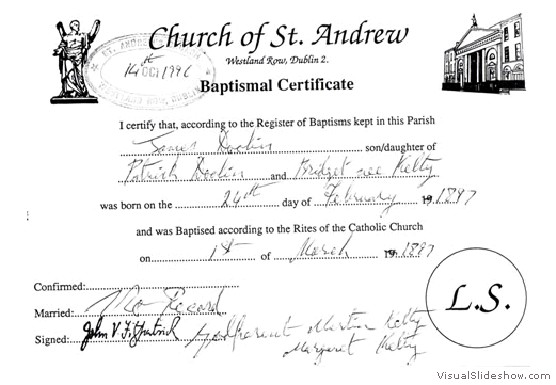 Church of St. Andrew
Westland Row, Dublin 2.
ST. ANDREW'S
14th OCT 1996
WESTLAND ROW, DUBLIN
Baptismal Certificate
I certify that, according to the Register of Baptisms kept in this Parish
James son/daughter of
Patrick and Bridget nee Kelty
was born on the 24th day of February 1897
and was Baptised according to the Rites of the Catholic Church
on 1st of March 1897
Confirmed:
Married: No Record
Signed: John V Fitzpatrick Godparent Martin Kelty
Margaret Kelty
L.S.
VisualSlideshow.com